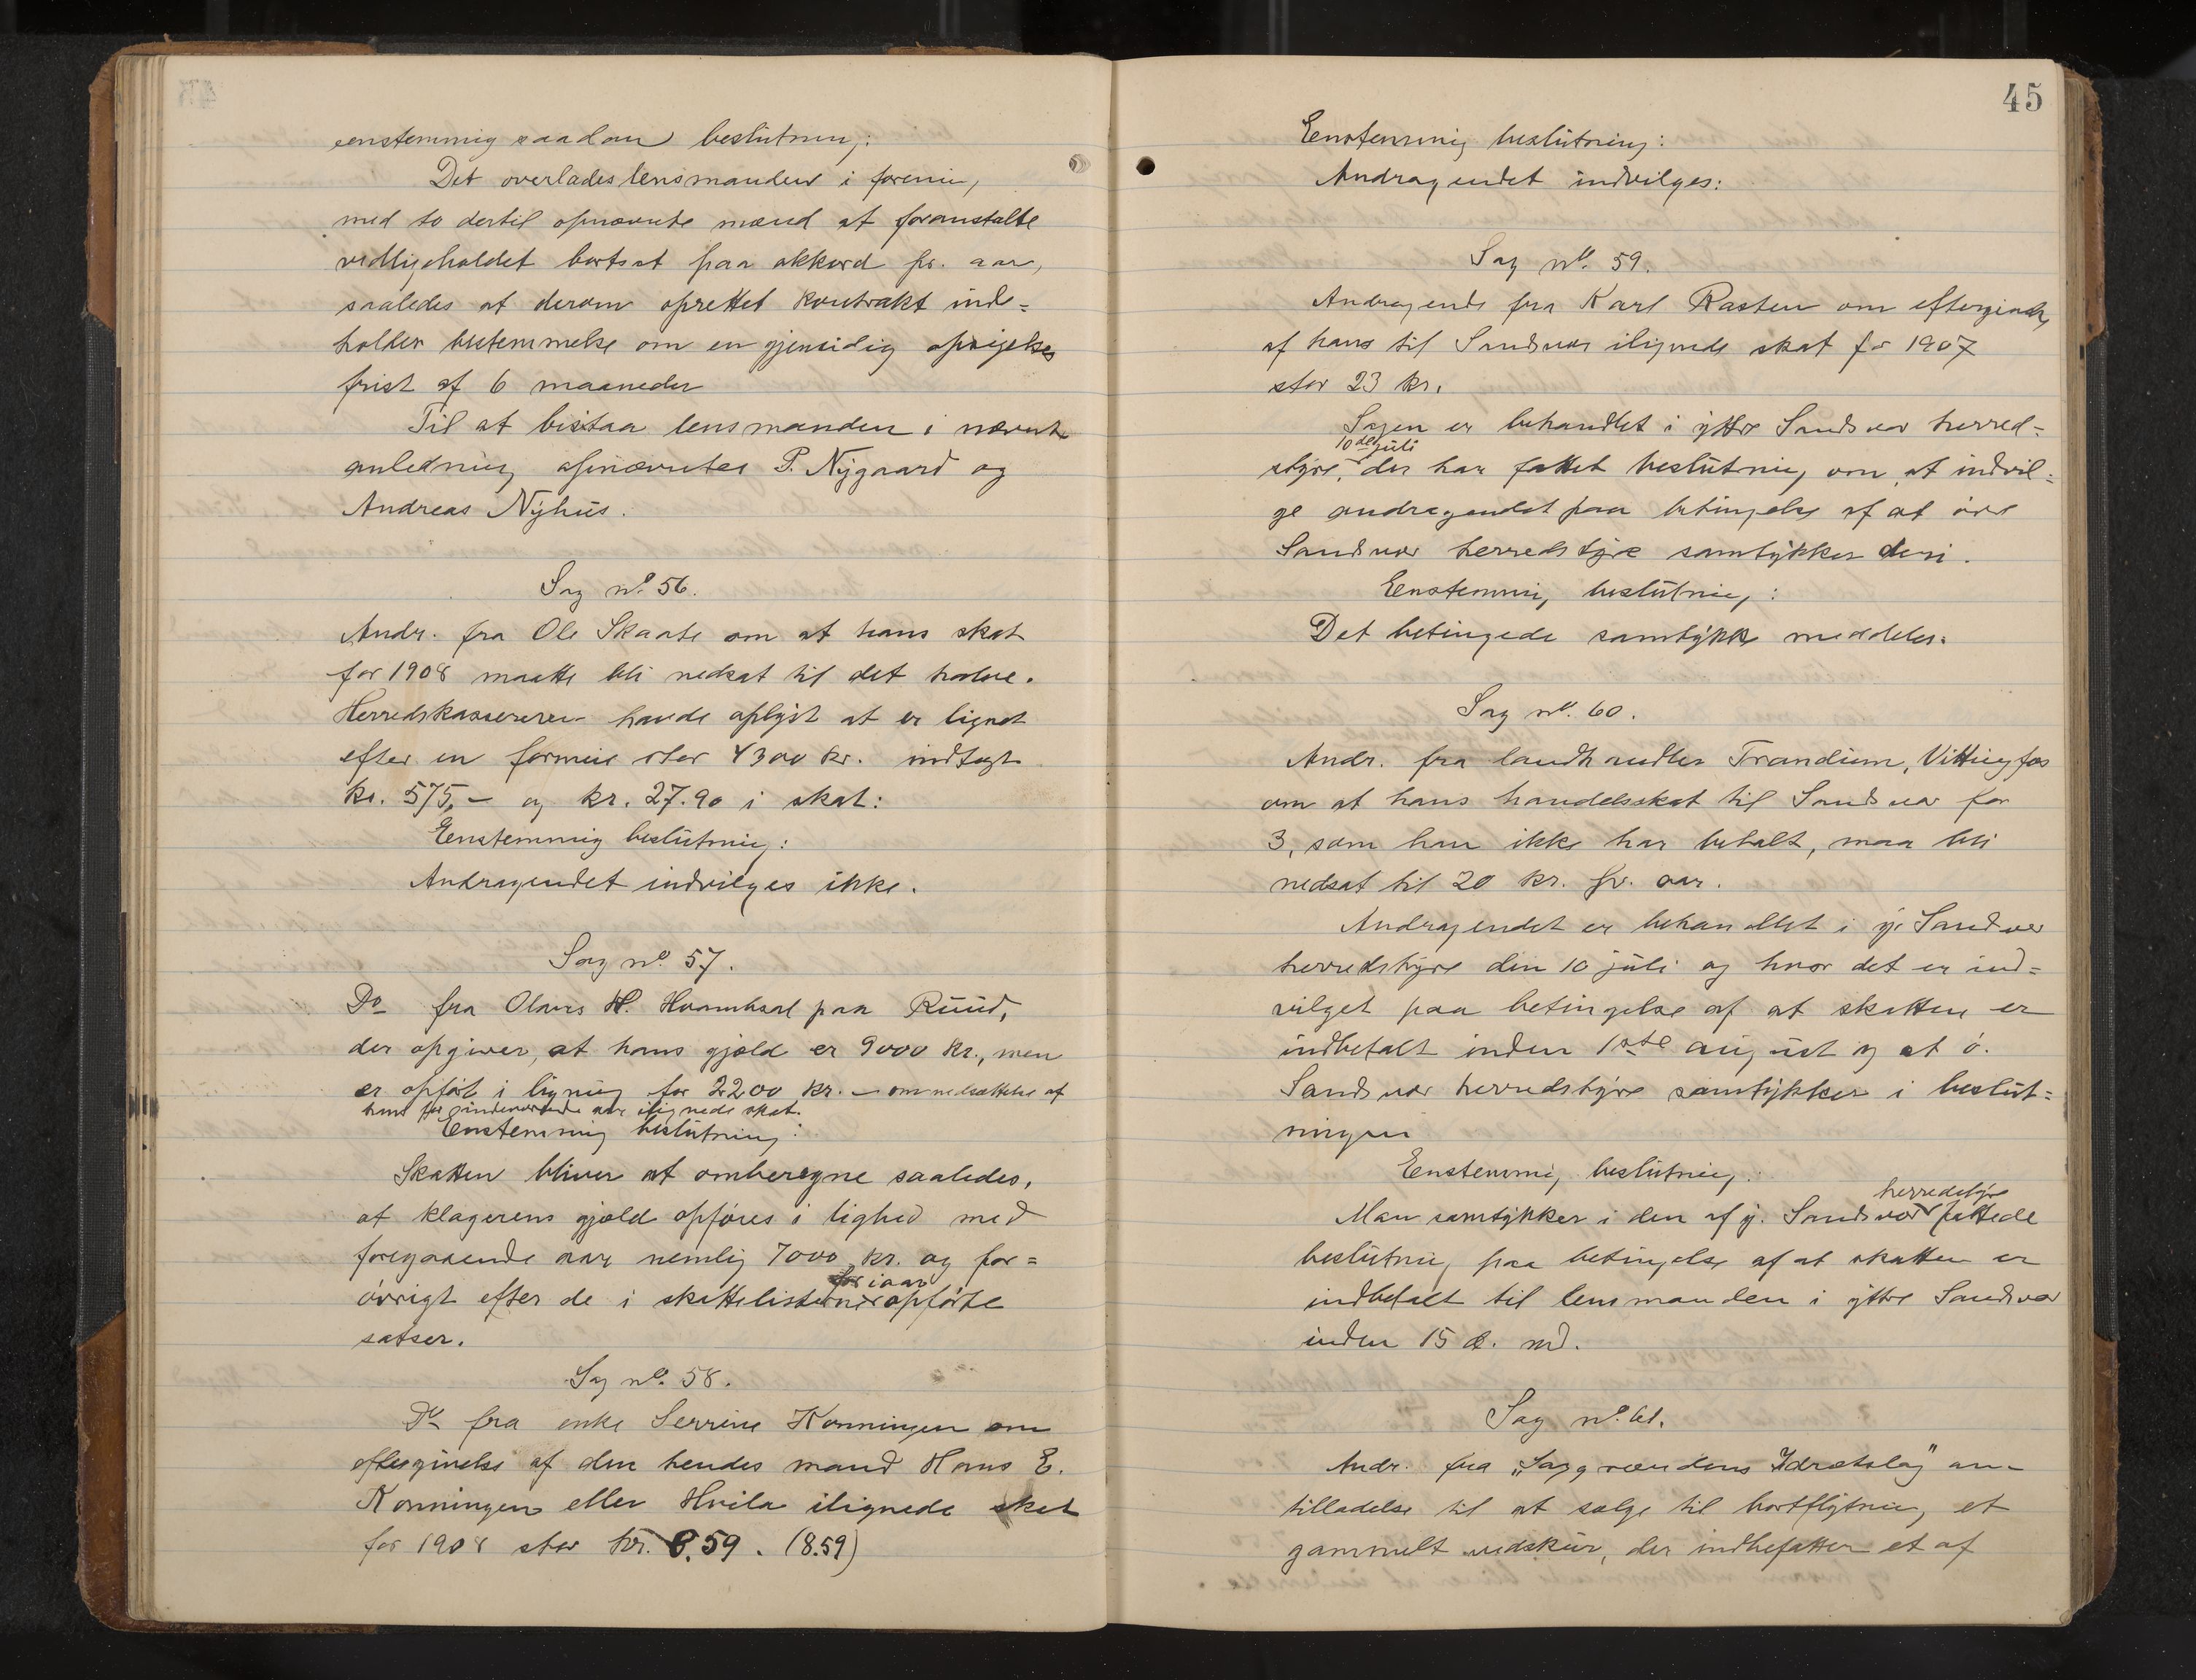 eenstemmig saadan beslutning:
Det overlades lensmanden i forening
med to dertil opnævnte mænd at foranstalte
vedligeholdet bortsat paa akkord pr. aar,
saaledes at derom oprettet kontrakt inde=
holder bestemmelse om en gjensidig opsigelses
frist af 6 maaneder
Til at bistaa lensmanden i nævnte
anledning opnævntes P. Nygaard og
Andreas Nyhus.
Sag no. 56.
Andr. fra Ole Skaate om at hans skat
for 1908 maatte bli nedsat til det halve.
Herredskassereren havde oplyst at er lignet
efter en formue stor 4300 kr. indtægt
kr. 575,- og kr. 27.90 i skat:
Eenstemmig beslutning:
Andragendet indvilges ikke.
Sag no. 57.
Do fra Olaves H. paa Ruud,
der opgiver, at hans gjæld er 9000 kr., men
er opført i ligning for 2200 kr. - om nedsættelse af
hans for indeværende aar ilignede skat.
Eenstemmig beslutning:
Skatten bliver at omberegne saaledes,
at klagerens gjæld opføres i lighed med
foregaaende aar nemlig 7000 kr. og for=
øvrigt efter de i skattelisterne for iaar opførte
satser.
Sag no. 58.
Do fra enke Serrine Konningen om
eftergivelse af den hendes mand Hans E.
Konningen eller Hvila ilignede skat
for 1908 stor kr. 8.59. (8.59)
45
Eenstemmig beslutning:
Andragendet indvilges:
Sag no. 59.
Andragende fra Karl Rasten om eftergivelse
af hans til Sandsvær ilignede skat for 1907
stor 23 kr.
Sagen er behandlet i yttre Sandsvær herred=
styre 10de juli, der har fattet beslutning om at indvil=
ge andragendet paa betingelse af at øvre
Sandsvær herredstyre samtykker deri.
Eenstemmig beslutning:
Det betingede samtykke meddeles.
Sag no. 60.
Andr. fra landhandler Trandum, Vittingfos
om at hans handelsskat til Sandsvær for
3, som han ikke har betalt, maa bli
nedsat til 20 kr. pr. aar.
Andragendet er behandlet i y. Sandsvær
herredstyre den 10 juli og hvor det er ind=
vilget paa betingelse af at skatten er
indbetalt inden 1ste august og at ø.
Sandsvær herredstyre samtykker i beslut=
ningen
Eenstemmig beslutning:
Man samtykker i den af y. Sandsvær herredstyre fattede
beslutning paa betingelse af at skatten er
indbetalt til lensmanden i yttre Sandsvær
inden 15 d. md.
Sag no. 61.
Andr. fra „Saggrændens Idrætslag" om
tilladelse til at sælge til bortflytning et
gammelt vedskur, der indbefatter et af